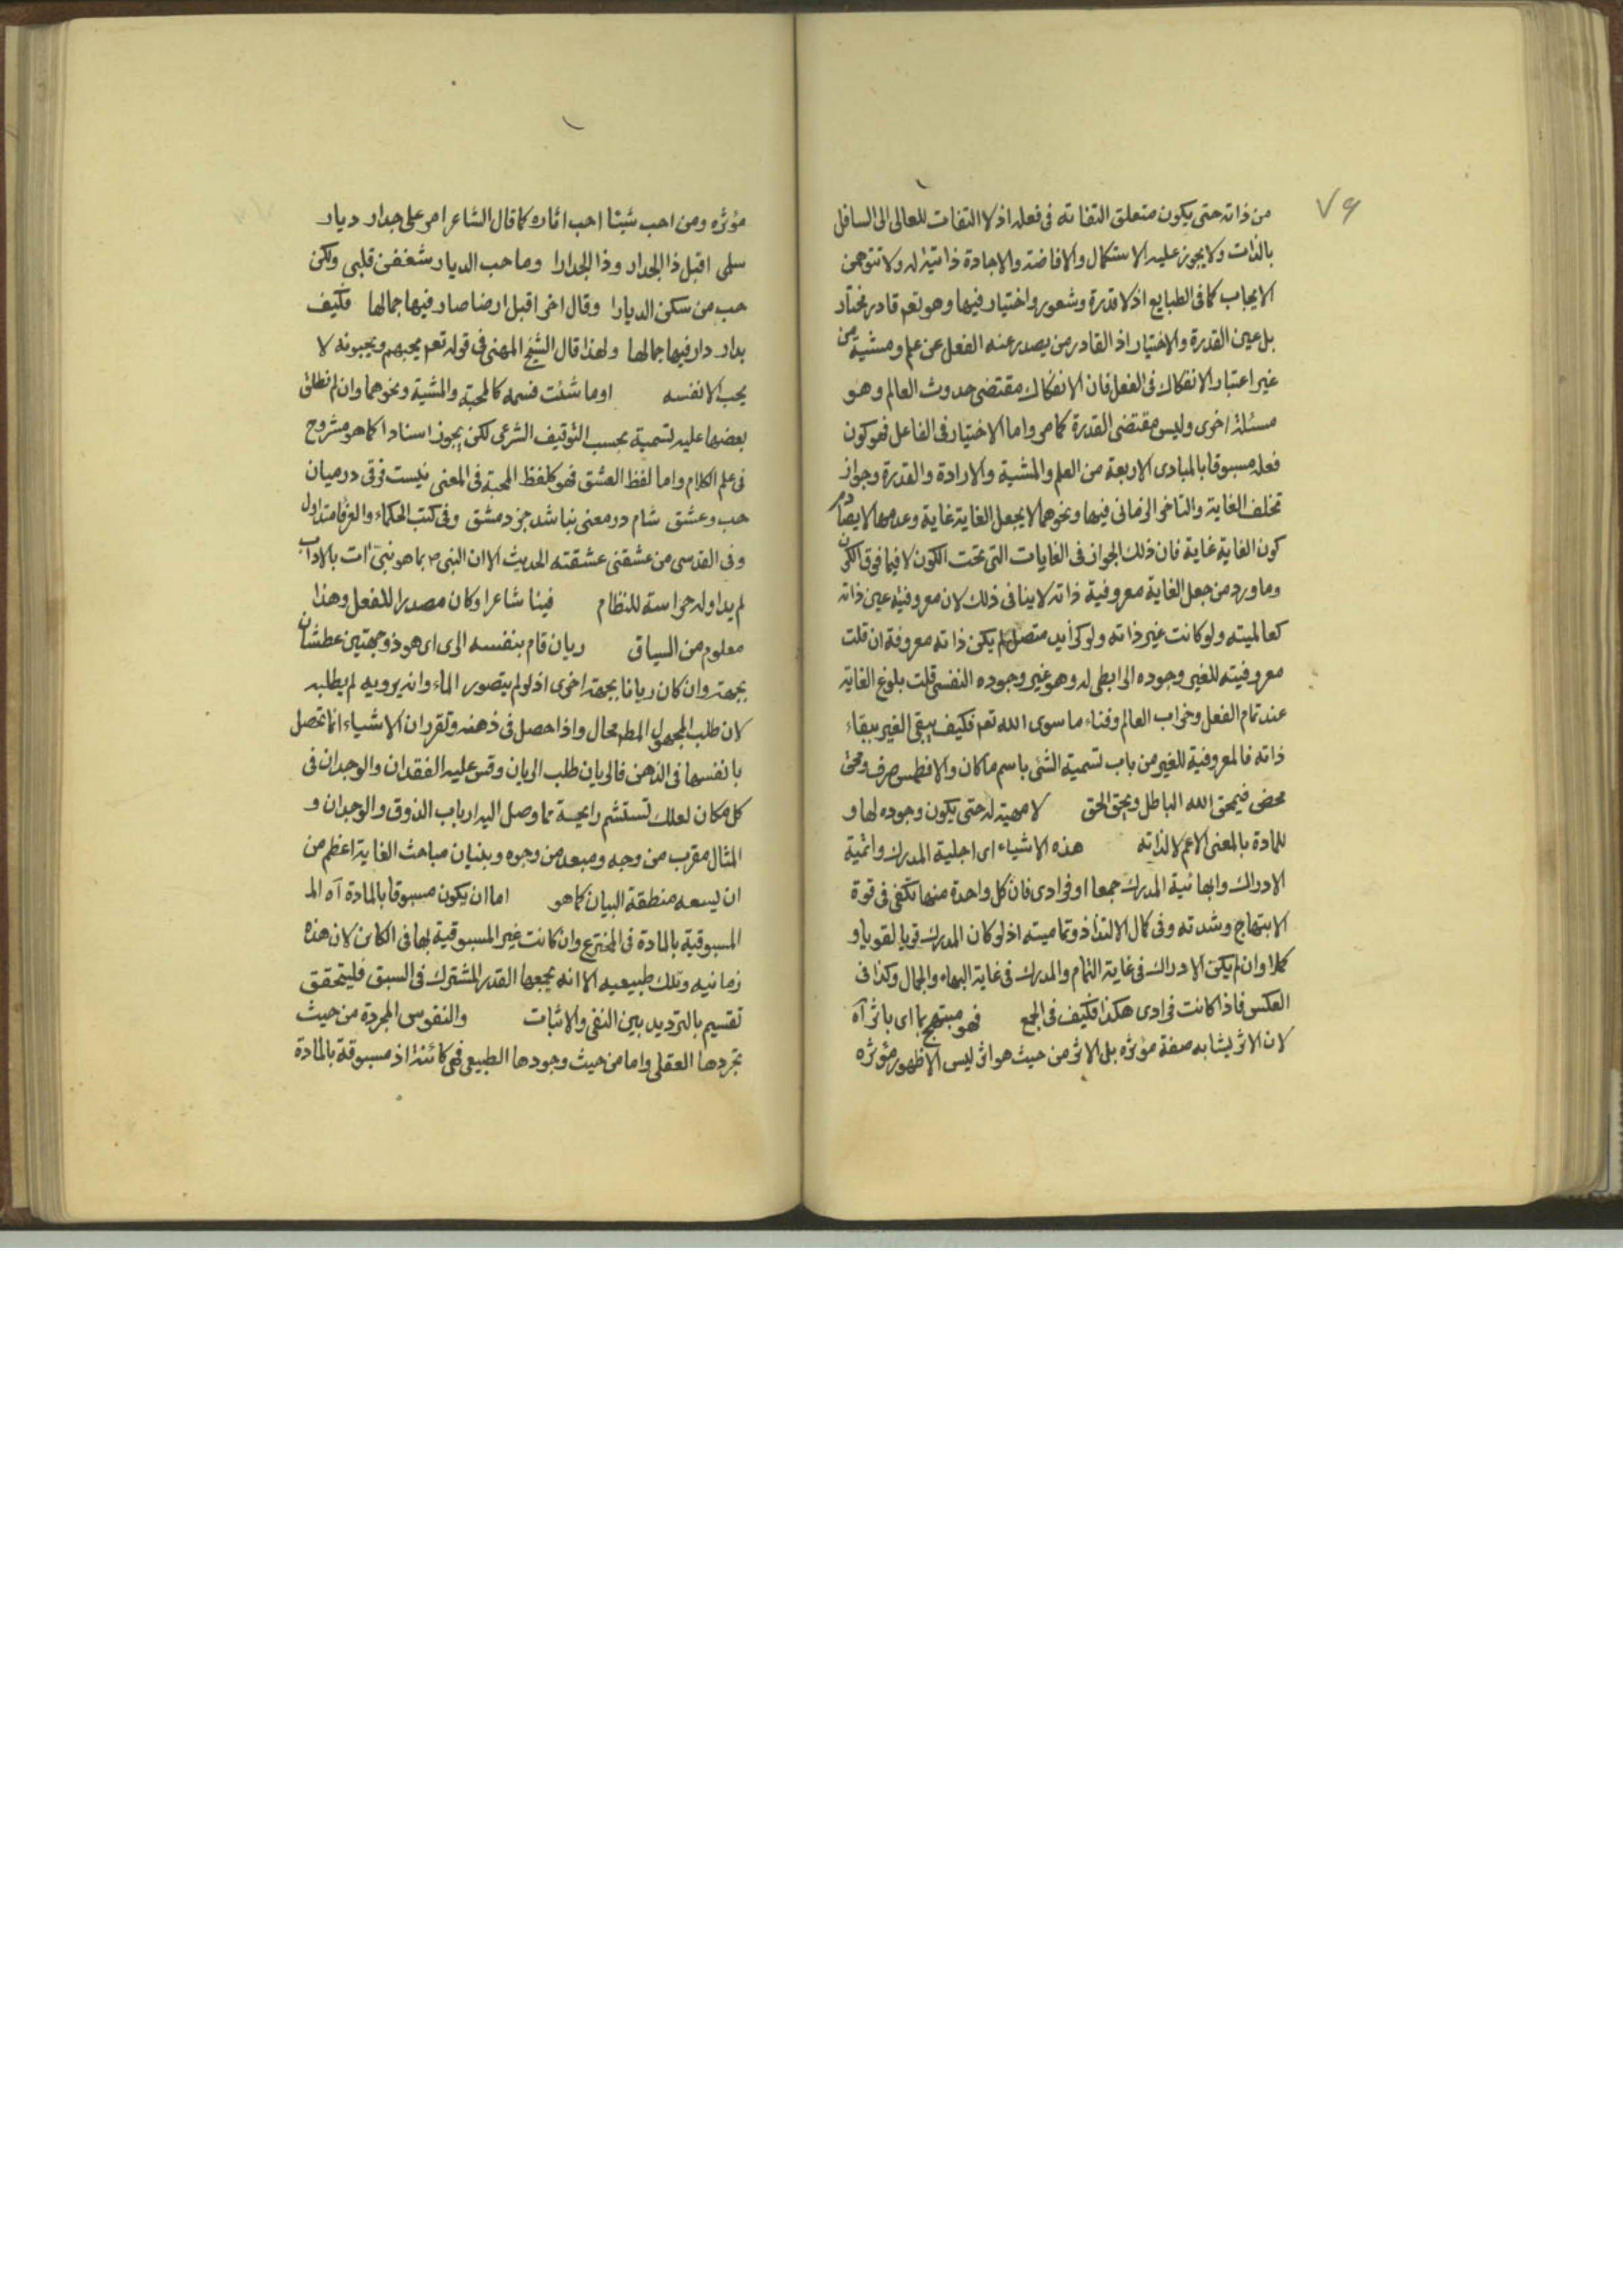 ٧٩
من ذاته حتى يكون متعلق التفاته فى فعله اذ لا التفات للعالى الى السافل
بالذات ولا يجوز عليه الاستكمال والافاضة والاجادة ذاتية له ولا تتوهمن
الايجاب كما فى الطبايع اذ لا قدرة وشعور واختيار فيها وهو تعه قادر مختار
بل عين القدرة والاختيار اذ القادر من يصدر عنه الفعل عن علم ومشية من
غير اعتبار الانفكاك فى الفعل فان الانفكاك مقتضى حدوث العالم وهو
مسئلة اخرى وليس مقتضى القدرة كما مر واما الاختيار فى الفاعل فهو كون
فعله مسبوقا بالمبادى الاربعة من العلم والمشية والارادة والقدرة وجواز
تخلف الغاية والتاخر الزمانى فيها ونحوهما لا يجعل الغاية غاية وعدمها لا يصادم
كون الغاية غاية فان ذلك الجواز فى الغايات التى تحت الكون لا فيما فوق الكون
وما ورد من جعل الغاية معروفية ذاته لا ينافى ذلك لان معروفيته عين ذاته
كعالميته ولو كانت غير ذاته ولو كزايد متصل لم يكن ذاته معروفة ان قلت
معروفيته للغير وجوده الرابطى له وهو غير وجوده النفسى قلت بلوغ الغاية
عند تمام الفعل وخراب العالم وفناء ما سوى الله تعه فكيف يبقى الغير ببقاء
ذاته فالمعروفية للغير من باب تسمية الشئ باسم ما كان والا فطمس صرف ومحق
محض فيمحق الله الباطل ويحق الحق لا مهية له حتى يكون وجوده لها و
للمادة بالمعنى الاعم لا لذاته هذه الاشياء اى اجلية المدرك واتمية
الادراك وابهائية المدرك جمعا او فرادى فان كل واحدة منها تكفى فى قوة
الابتهاج وشدته وفى كمال الالتذاذ وتماميته اذ لو كان المدرك قويا لقويا و
كملا وان لم يكن الادراك فى غاية التمام والمدرك فى غاية البهاء والجمال وكذا فى
العكس فاذا كانت فرادى هكذا فكيف فى الجمع فهو مبتهج بما اى باثر آه
لان الاثر يشابه صفة مؤثره بل الاثر من حيث هو اثر ليس الا ظهور مؤثره
مؤثره ومن احب شيئا احب اثاره كما قال الشاعر امر على جدار ديار
سلمى اقبل ذا الجدار وذا الجدارا وما حب الديار شغفن قلبى ولكن
حب من سكن الديارا وقال اخر اقبل ارضا صار فيها جمالها فكيف
بدار دار فيها جمالها ولهذا قال الشيخ المهنى فى قوله تعه يحبهم ويحبونه لا
يحب الا نفسه او ما شئت فسمه كالمحبة والمشية ونحوهما وان لم نطلق
بعضها عليه لتسمية بحسب التوقيف الشرعى لكن يجوز اسنادا كما هو مشروح
فى علم الكلام واما لفظ العشق فهو كلفظ المحبة فى المعنى نيست فرقى درميان
حب وعشق شام در معنى نباشد جز دمشق وفى كتب الحكماء والعرفا متداول
وفى القدسى من عشقنى عشقته الحديث الا ان النبى ص بما هو نبى آت بالاداب
لم يداوله حراسة للنظام فينا شاعرا وكان مصدرا للفعل وهذا
معلوم من السياق ريان قام بنفسه الرى اى هو ذو جهتين عطشان
بجهة وان كان ريانا بجهة اخرى اذ لو لم يتصور الماء وانه يرويه لم يطلبه
لان طلب المجهول المطـ محال واذا حصل فى ذهنه وتقرر ان الاشياء انما تحصل
بانفسها فى الذهن فالريان طلب الريان وقس عليه الفقدان والوجدان فى
كل مكان لعلك تستشم رايحة مما وصل اليه ارباب الذوق والوجدان و
المثال مقرب من وجه ومبعد من وجوه وبنيان مباحث الغاية اعظم من
ان يسعه منطقة البيان كما هو اما ان يكون مسبوقا بالمادة آه المـ
المسبوقية بالمادة فى المخترع وان كانت غير المسبوقية بها فى الكاين لان هذه
زمانيه وتلك طبيعيه الا انه يجمعها القدر المشترك فى السبق فليتحقق
تقسيم بالترديد بين النفى والاثبات والنفوس المجردة من حيث
تجردها العقلى واما من حيث وجودها الطبيعى فهى كائنة اذ مسبوقة بالمادة